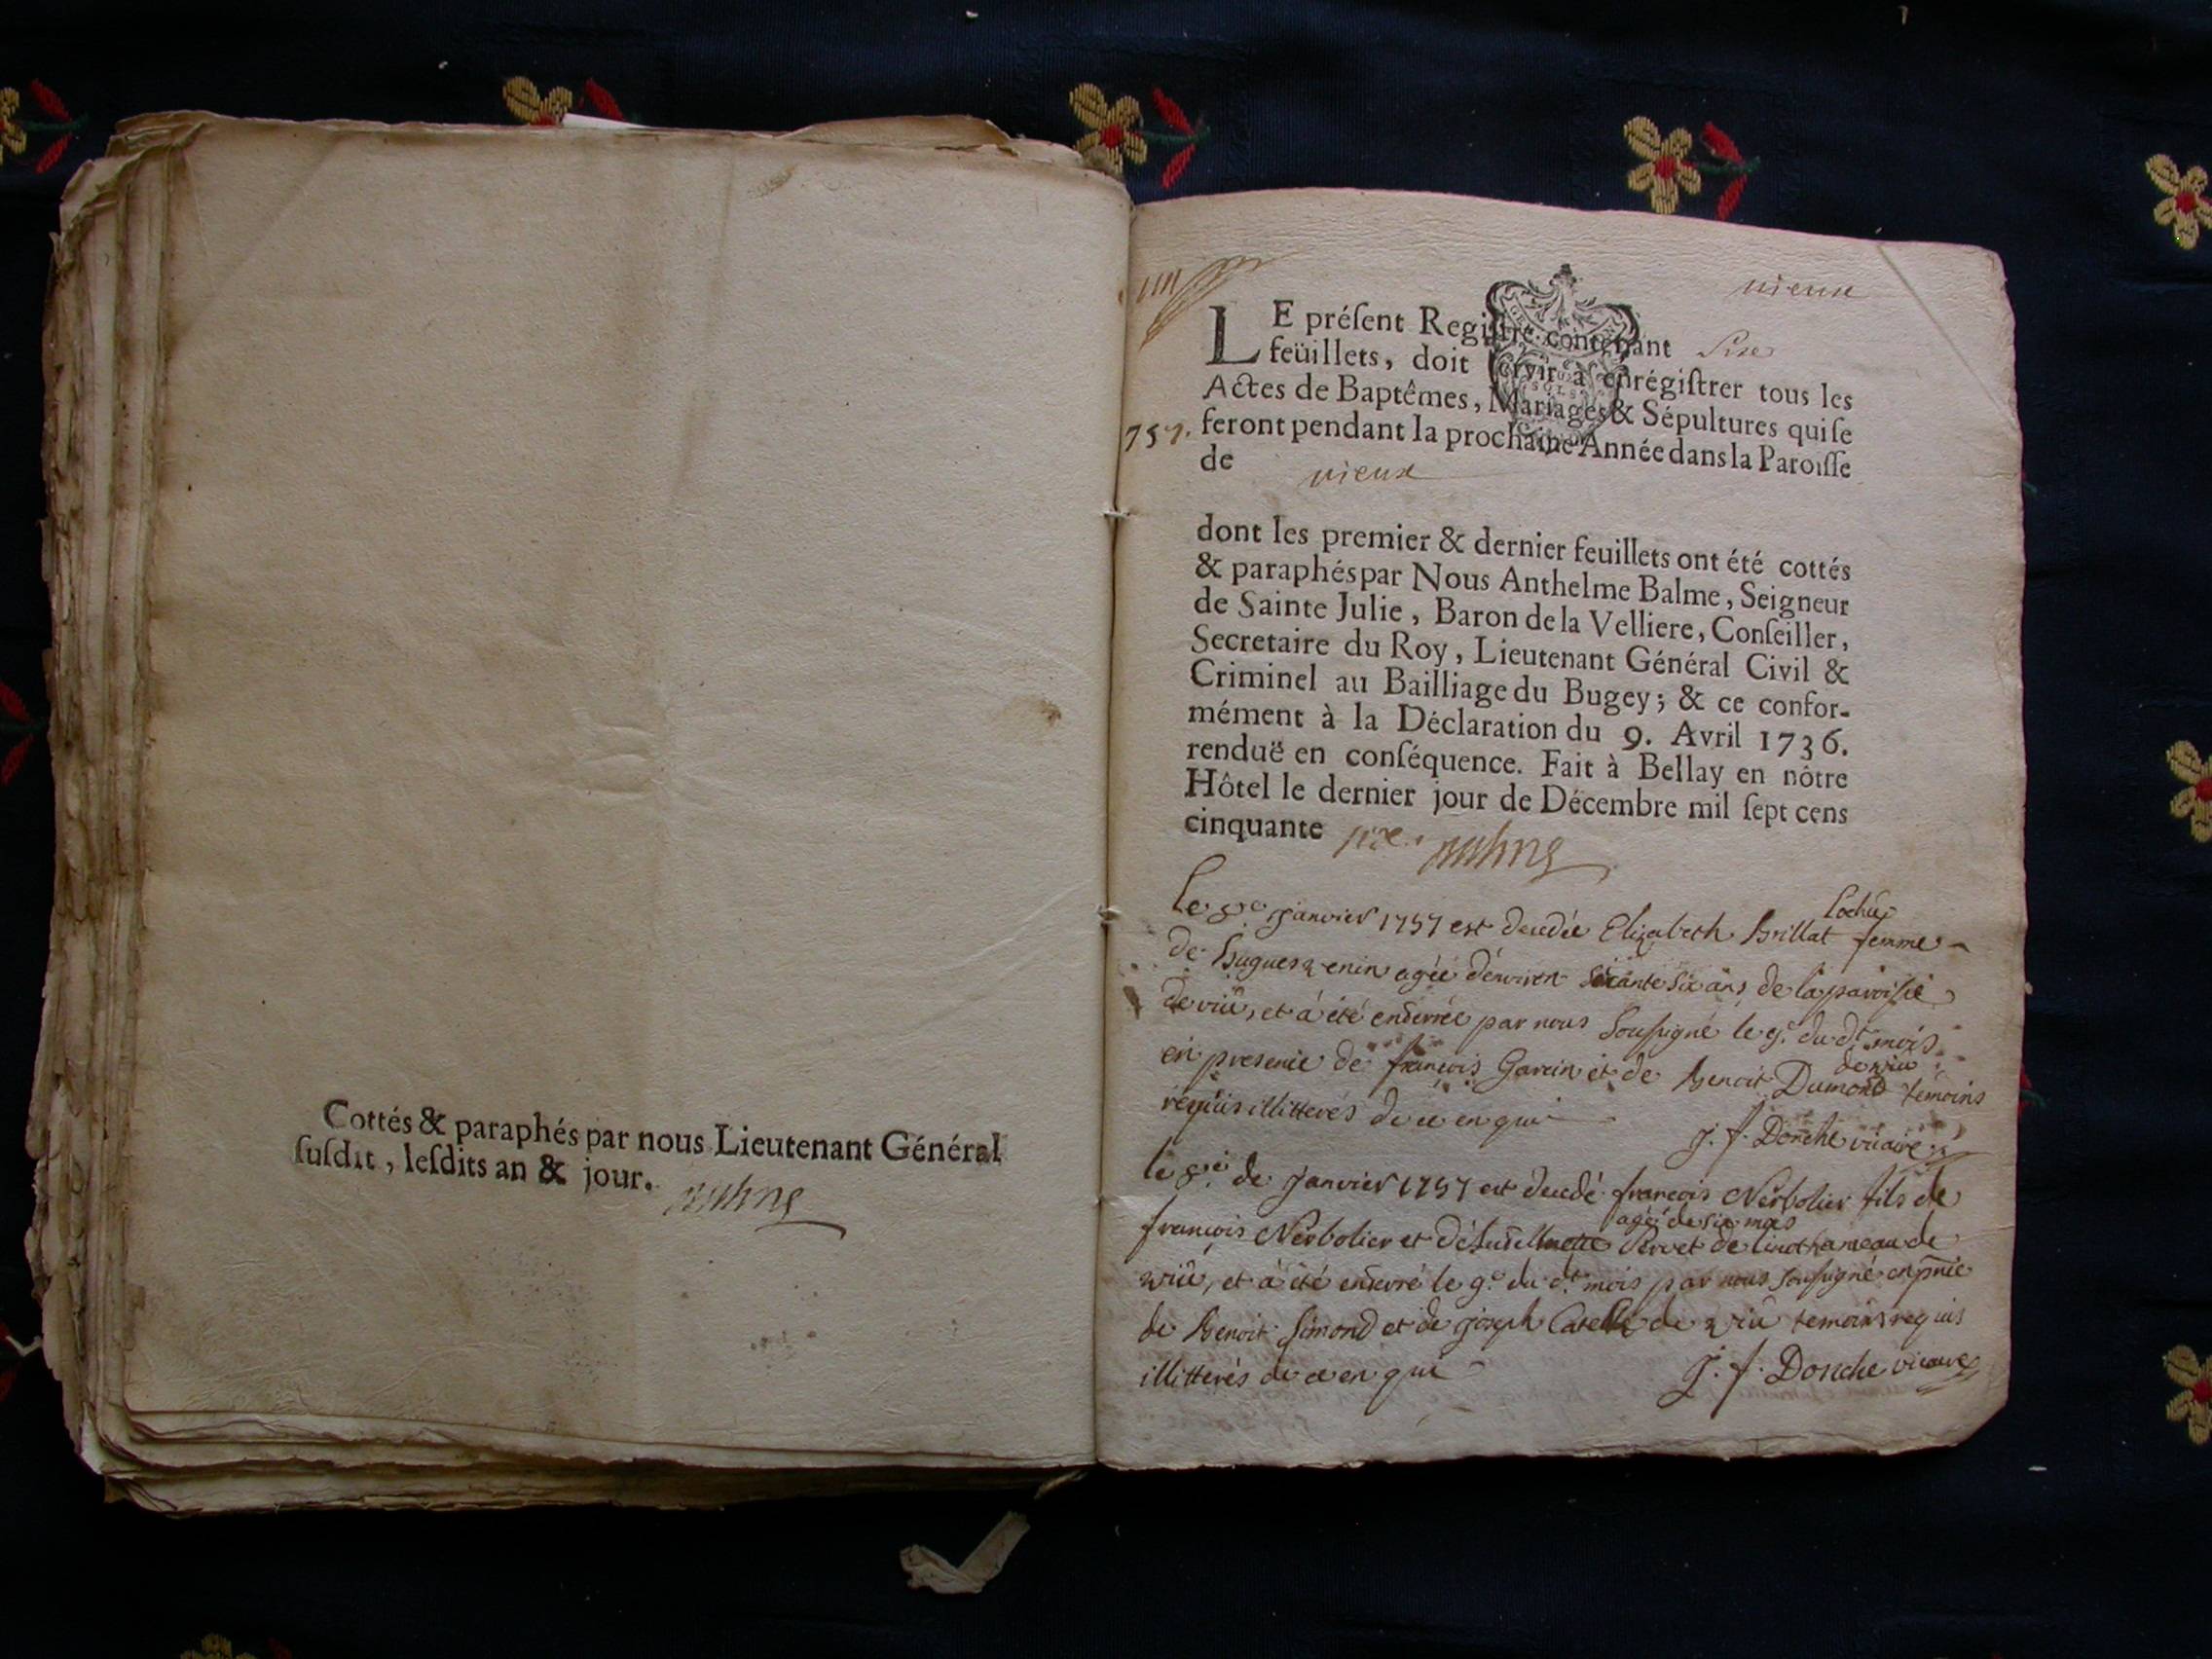 Cottés & paraphés par nous Lieutenant Général
ſuſdit, leſdits an & jour.
vieux
LE préſent Regiſtre contenant Sixe
feüillets, doit ſervir à enrégiſtrer tous les
Actes de Baptêmes, Mariages & Sépultures qui ſe
757. feront pendant la prochaine Année dans la Paroiſſe
de vieux
dont les premier & dernier feuillets ont été cottés
& paraphés par Nous Anthelme Balme, Seigneur
de Sainte Julie, Baron de la Velliere, Conſeiller,
Secretaire du Roy, Lieutenant Général Civil &
Criminel au Bailliage du Bugey; & ce confor-
mément à la Déclaration du 9. Avril 1736.
renduë en conſéquence. Fait à Bellay en nôtre
Hôtel le dernier jour de Décembre mil ſept cens
cinquante six.
Le 8e janvier 1757 est decedée Elizabeth Brillat femme
de hugues agée d'environ soixante six ans de la paroisse
de viû, et a été enterrée par nous soussigné le 9e du dt mois
en presence de françois Garcin et de Benoit Dumond de viû temoins
requis illitterés de ce enquis
J. f. Donche vicaire
le 8e de janvier 1757 est decedé françois Nerbolier fils de
françois Nerbolier et de Pervet agé de six mois hameau de
viû, et a été enterré le 9e du dt mois par nous soussigné en pnce
de Benoit Simond et de joseph de viû temoins requis
illitterés de ce enquis
J. f. Donche vicaire